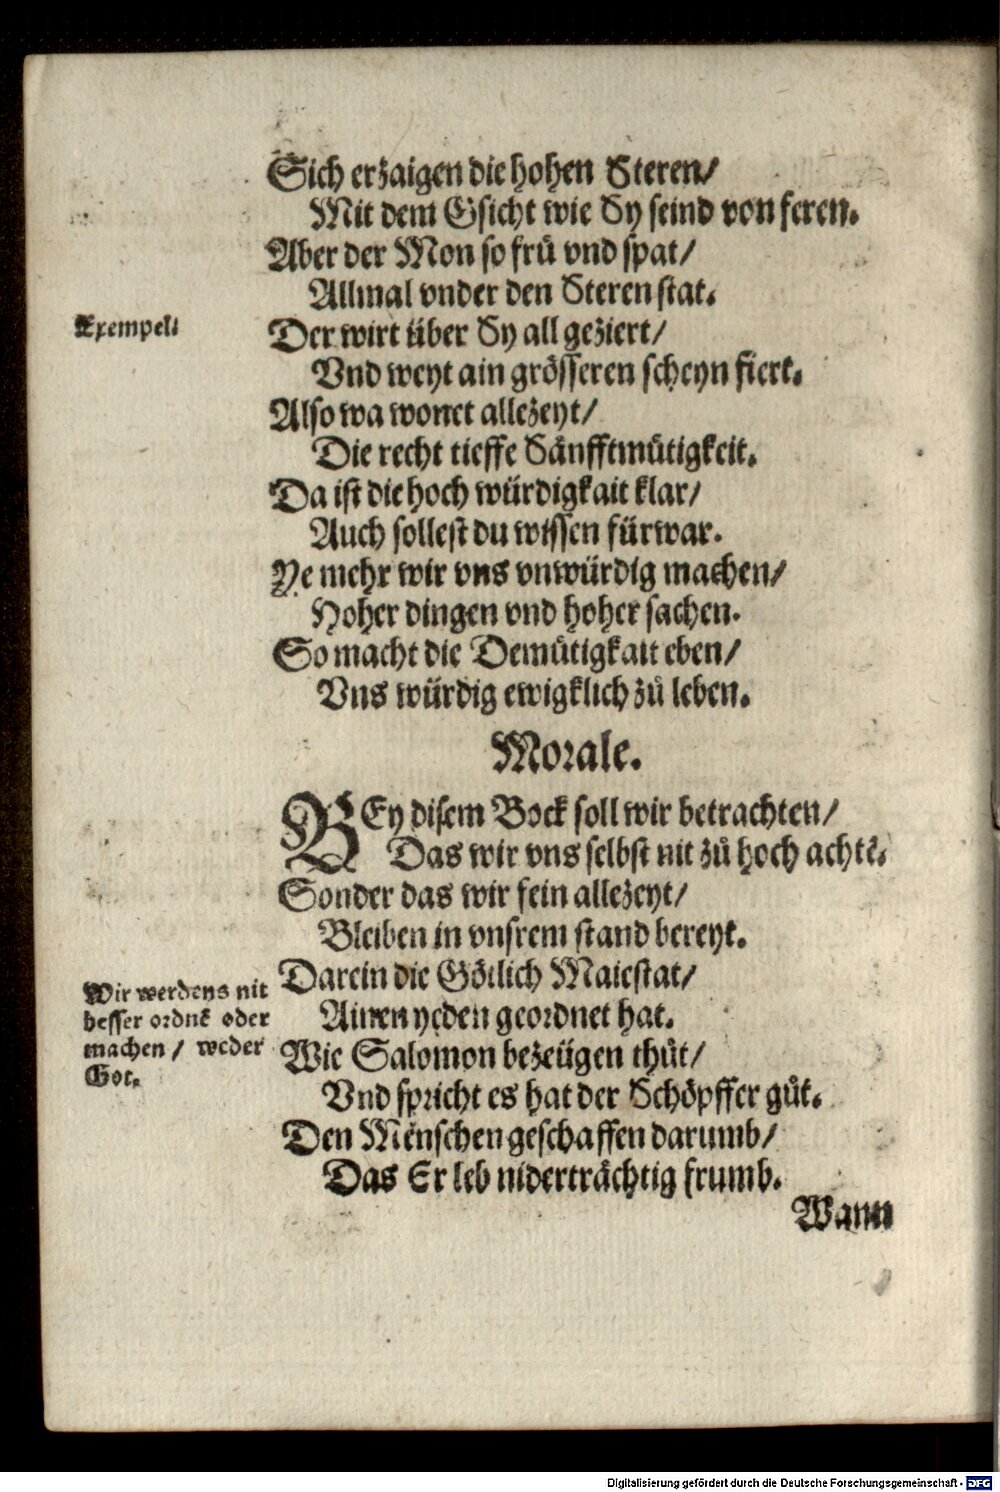 Sich erzaigen die hohen Steren/
Mit dem Gsicht wie Sy seind von feren.
Aber der Mon so frů vnd spat/
Allmal vnder den Steren stat.
Exempel.
Der wirt über Sy all geziert/
Vnd weyt ain grösseren scheyn fiert.
Also wa wonet allezeyt/
Die recht tieffe Sänfftmůtigkeit.
Da ist die hoch würdigkait klar/
Auch sollest du wissen fürwar.
Ye mehr wir vns vnwürdig machen/
Hoher dingen vnd hoher sachen.
So macht die Demůtigkait eben/
Vns würdig ewigklich zů leben.
Morale.
BEy disem Bock soll wir betrachten/
Das wir vns selbst nit zů hoch achtē.
Sonder das wir fein allezeyt/
Bleiben in vnsrem stand bereyt.
Darein die Götlich Maiestat/
Ainen yeden geordnet hat.
Wir werdens nit
besser ordnē oder
machen / weder
Got.
Wie Salomon bezeügen thůt/
Vnd spricht es hat der Schöpffer gůt.
Den Menschen geschaffen darumb/
Das Er leb niderträchtig frumb.
Wann
Digitalisierung gefördert durch die Deutsche Forschungsgemeinschaft - DFG